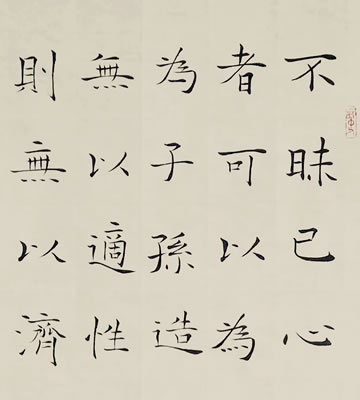 不昧己心
者可以為
為子孫造
無以適性
則無以濟